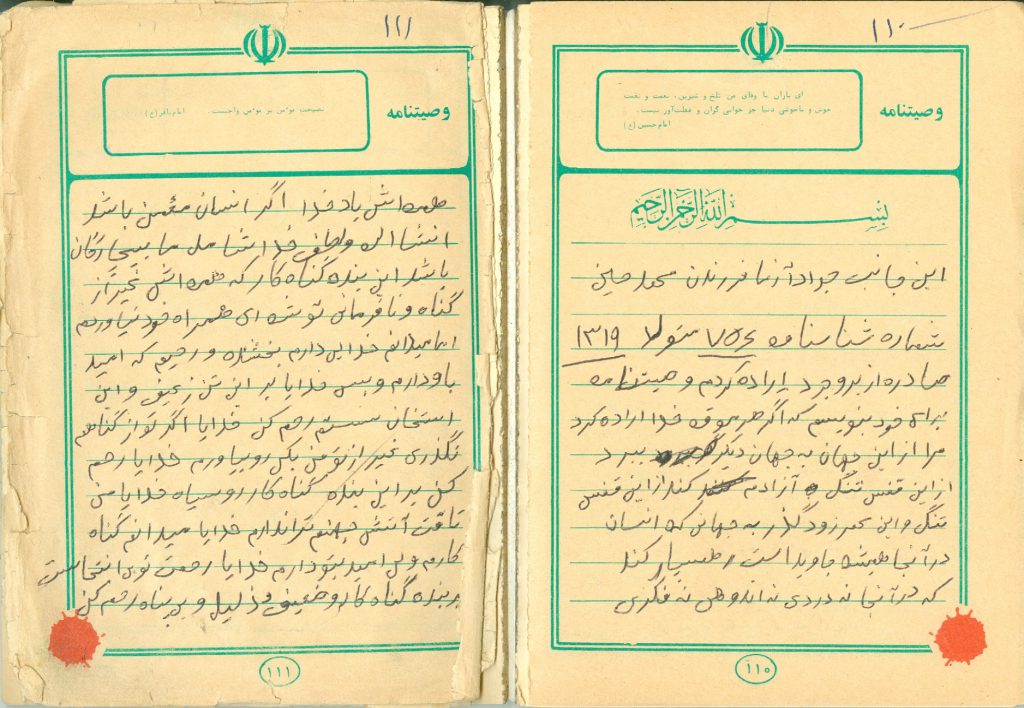 ۱۱۰
وصیتنامه
ای یاران با وفای من تلخ و شیرین، نعمت و نقمت
خوش و ناخوشی دنیا جز خوابی گران و غفلت‌آور نیست.
امام حسین (ع)
بسم الله الرحمن الرحیم
این جانب جواد آزنا فرزندان محمد حسین
شماره شناسنامه ۷۵۶ متولد ۱۳۱۹
صادره از بروجرد اراده کردم وصیتنامه
برای خود بنویسم که اگر هر موقه خدا اراده کرد
مرا از این جهان به جهان دیگر ببرد
از این قفس تنگ آزادم کند از این قفس
تنگ و این عمر زود گذر به جهانی که انسان
در آنجا همیشه جاوید است رهسپار کند
که در آنجا نه دردی نه اندوهی نه فکری
۱۱۰
۱۱۱
وصیتنامه
نصیحت مؤمن بر مؤمن واجبست امام باقر (ع)
همه‌اش یاد خدا اگر انسان مؤمن باشد
انشااله والطاف خدا شامل ما بیچارگان
باشد این بنده گناه کار که همه‌اش غیر از
گناه و نافرمانی توشه ای همراه خود نیاوردم
اما میدانم خدایی دارم بخشنده و رحیم که امید
باو دارم و بس خدایا بر این تن زعیف و این
استخان سستم رحم کن خدایا اگر تو از گناهم
نگذری غیر از تو من بکی رو بیاورم خدایا رحم
کن بر این بنده گناه کار رو سیاه خدایا من
تاقت آتش جهنم ندارم خدایا میدانم گناه
کارم ولی امید بتو دارم خدایا رحمت تو بی انتهاست
بر بنده گناه کار و ضعیف و ذلیل و بی پناه رحم کن
۱۱۱